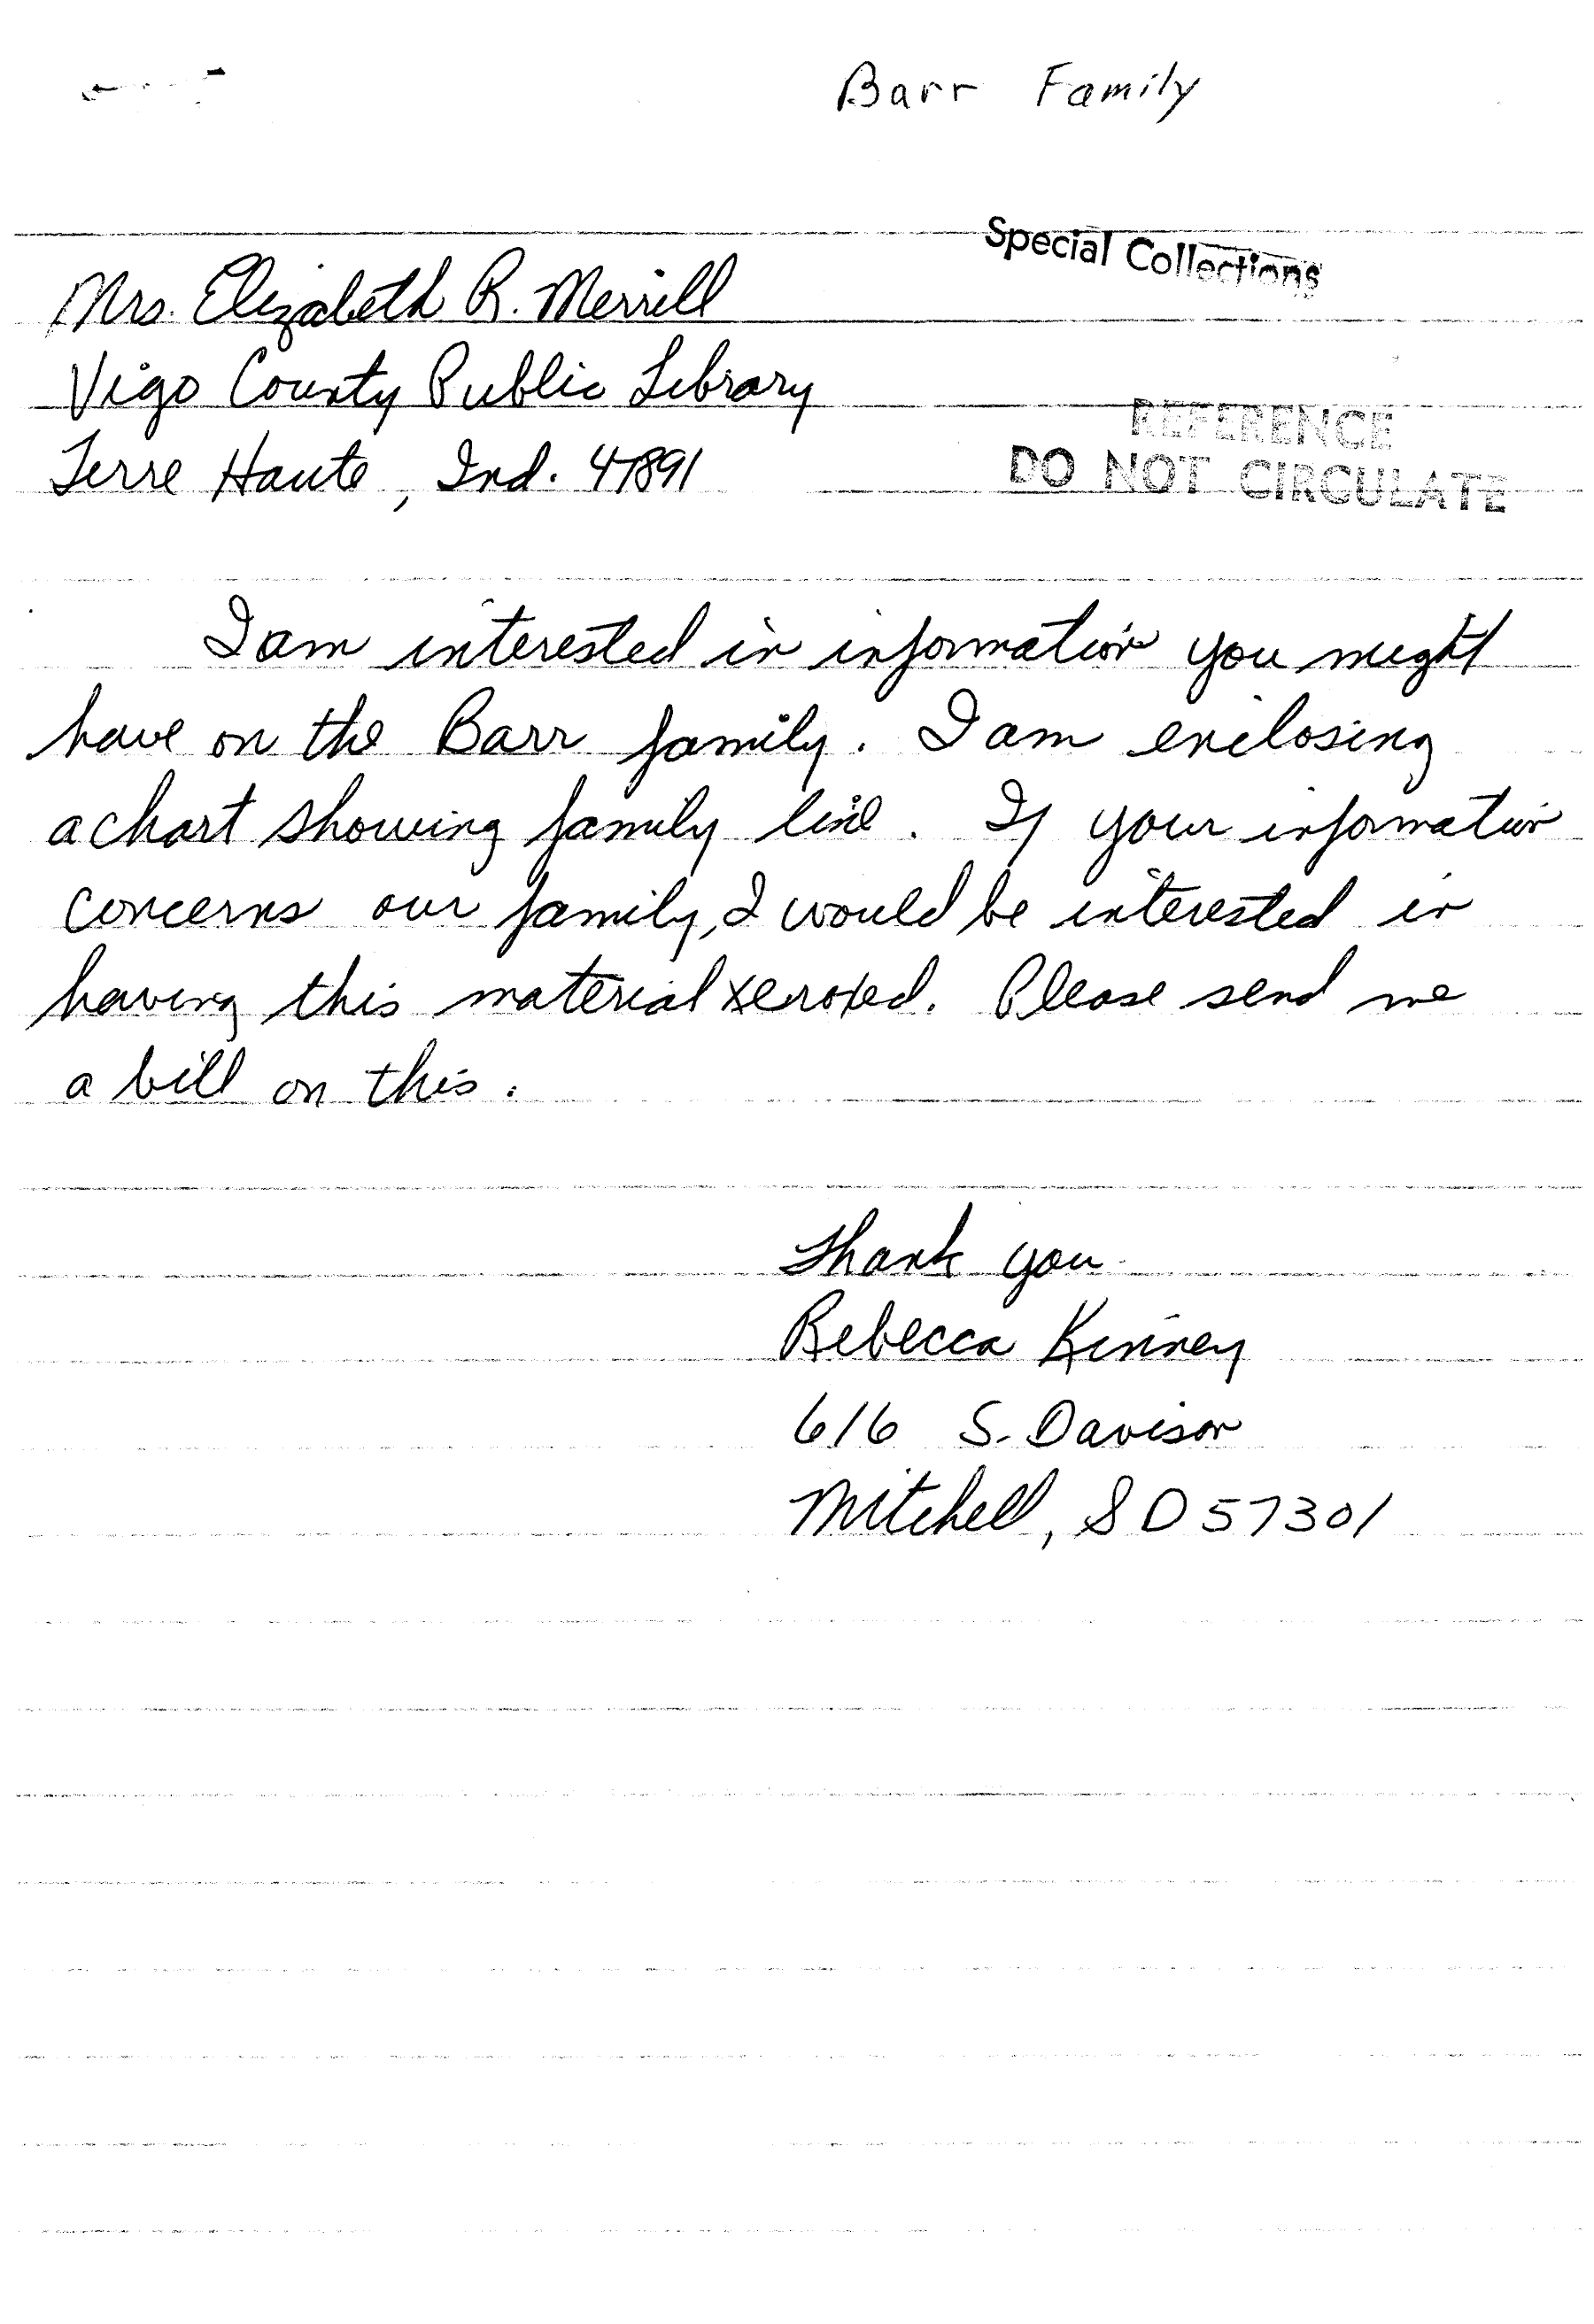 Barr Family
Special Collections
Mrs. Elizabeth R. Merrill
Vigo County Public Library
REFERENCE
Terre Haute, Ind. 47891
DO NOT CIRCULATE
I am interested in information you might
have on the Barr family. I am enclosing
a chart showing family line. If your information
concerns our family, I would be interested in
having this material xeroxed. Please send me
a bill on this.
Thank you
Rebecca Kinney
616 S. Davison
Mitchell, SD 57301